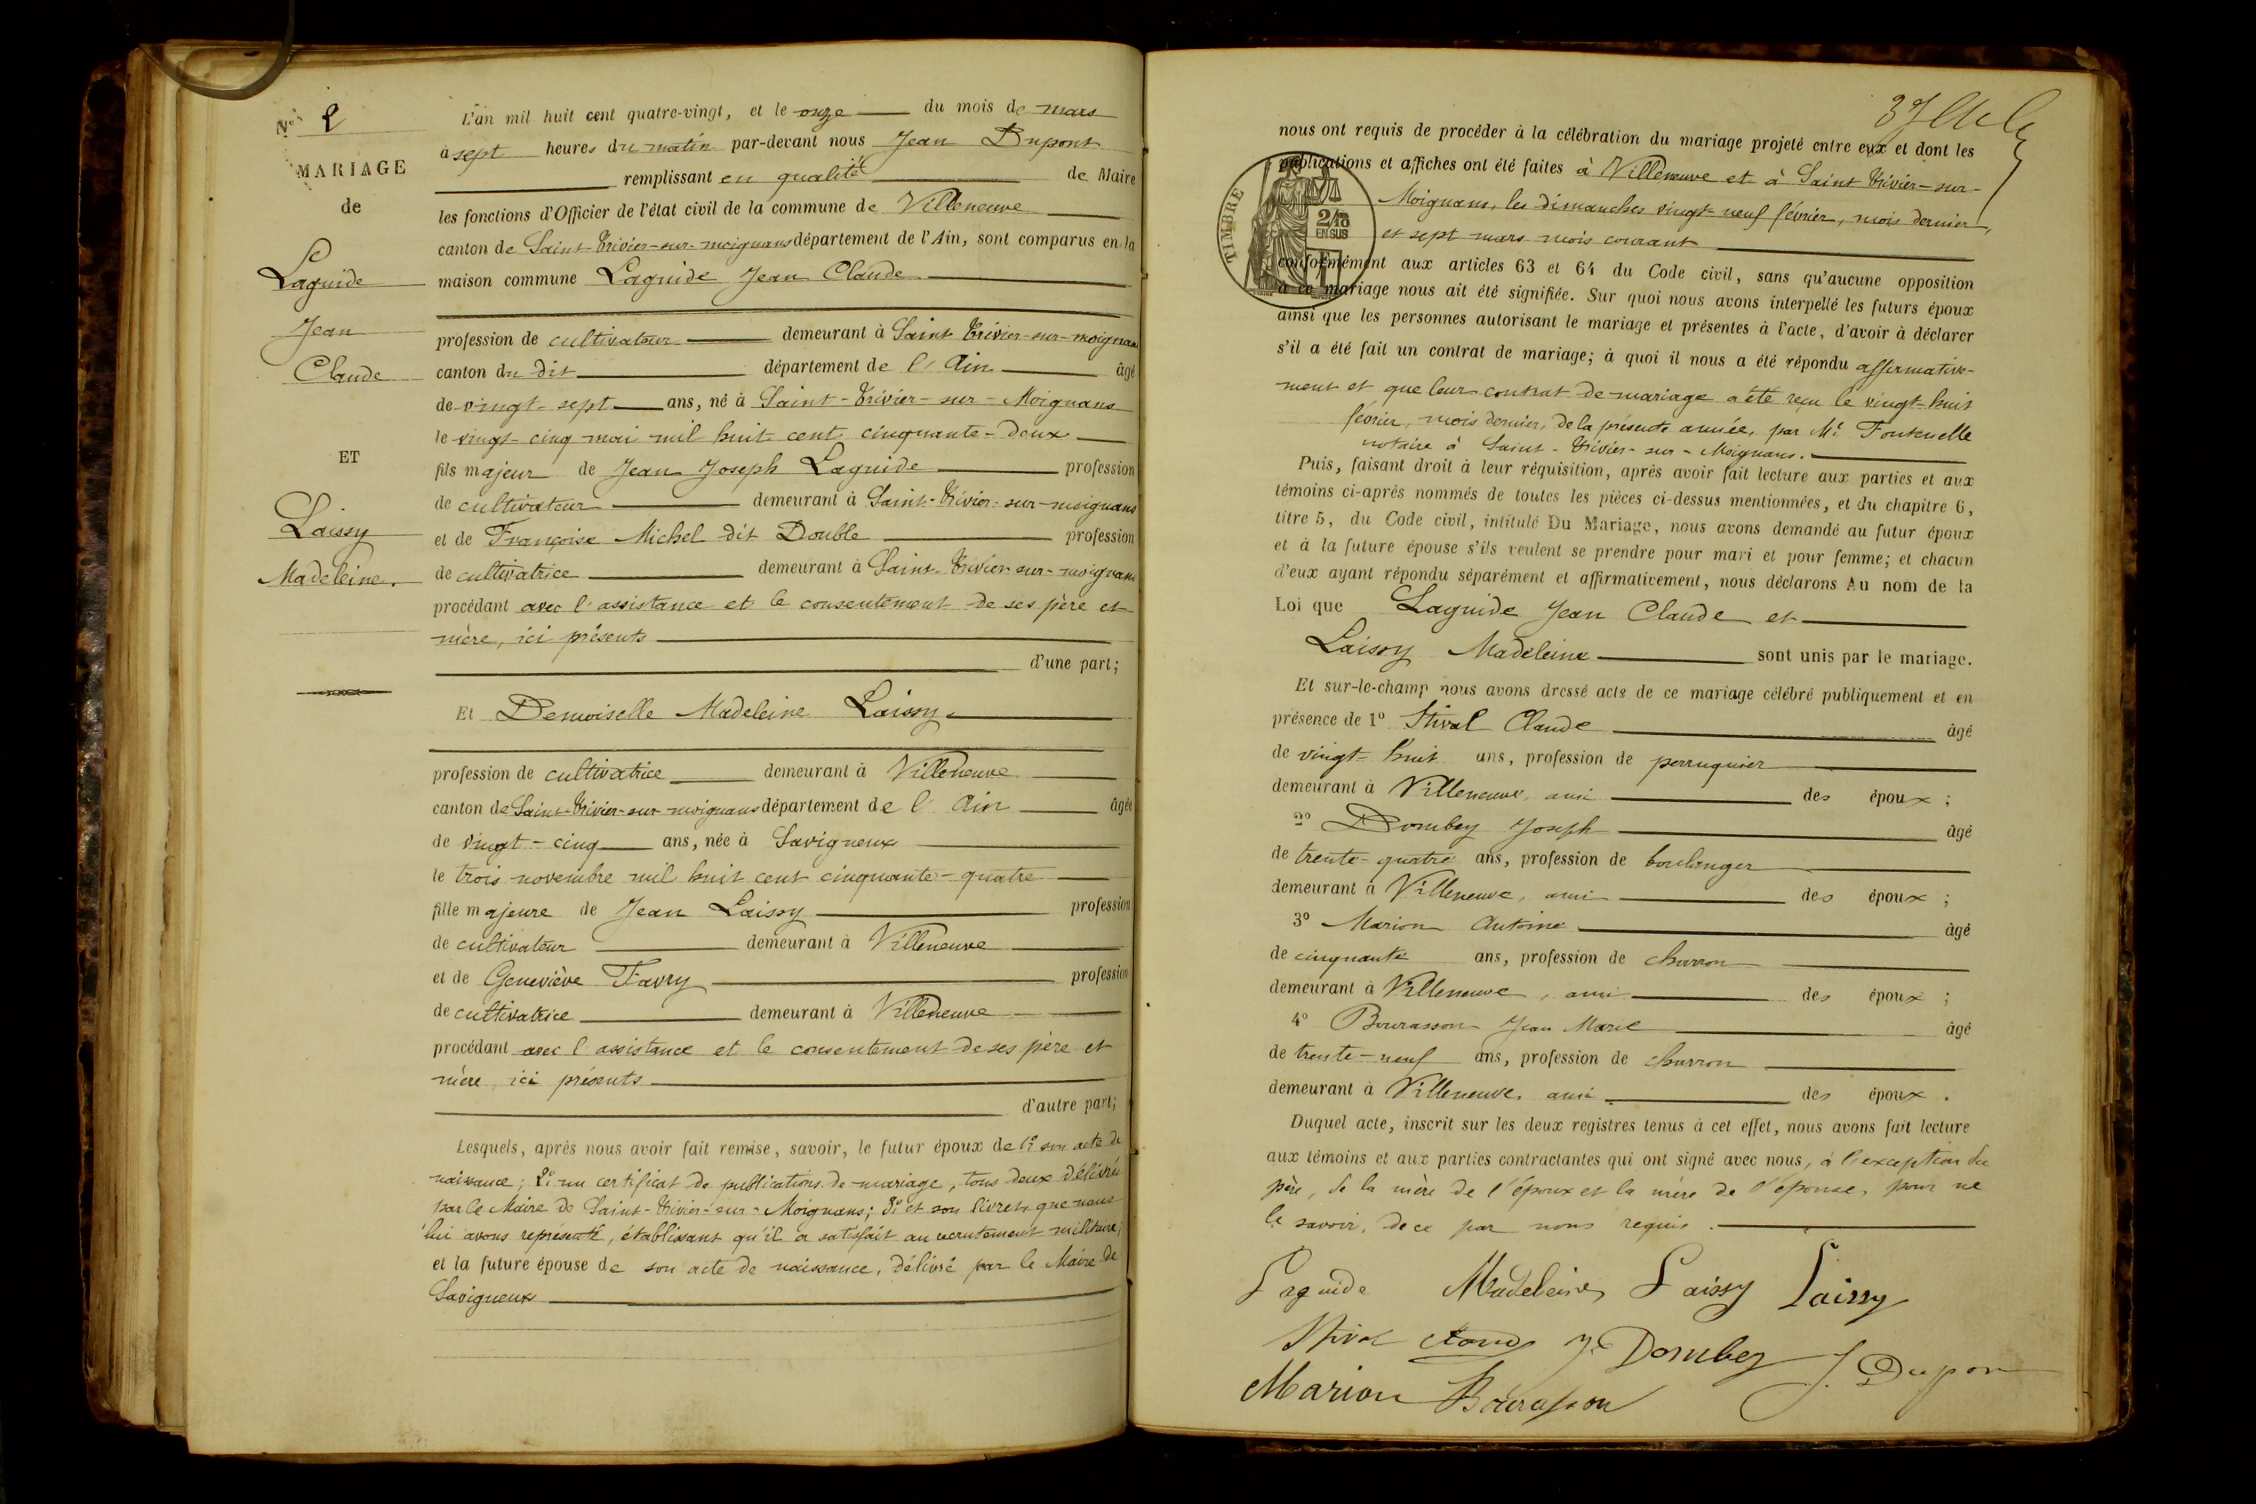 N° 2
MARIAGE
de
Laguide
Jean
Claude
ET
Laissy
Madeleine.
L'an mil huit cent quatre-vingt, et le onze du mois de mars
à sept heures du matin par-devant nous Jean Dupont
remplissant en qualité de Maire
les fonctions d'Officier de l'état civil de la commune de Villeneuve
canton de Saint-Trivier-sur-moignans département de l'Ain, sont comparus en la
maison commune Laguide Jean Claude
profession de cultivateur demeurant à Saint Trivier-sur-moignans
canton du dit département de l'Ain âgé
de vingt-sept ans, né à Saint-Trivier-sur-Moignans
le vingt-cinq mai mil huit cent cinquante-deux
fils majeur de Jean Joseph Laguide profession
de cultivateur demeurant à Saint-Trivier-sur-moignans
et de Françoise Michel dit Double profession
de cultivatrice demeurant à Saint-Trivier-sur-moignans
procédant avec l'assistance et le consentement de ses père et
mère, ici présents
d'une part;
Et Demoiselle Madeleine Laissy
profession de cultivatrice demeurant à Villeneuve
canton de Saint-Trivier-sur-moignans département de l'Ain âgée
de vingt-cinq ans, née à Savigneux
le trois novembre mil huit cent cinquante-quatre
fille majeure de Jean Laissy profession
de cultivateur demeurant à Villeneuve
et de Geneviève Favry profession
de cultivatrice demeurant à Villeneuve
procédant avec l'assistance et le consentement de ses père et
mère, ici présents
d'autre part;
Lesquels, après nous avoir fait remise, savoir, le futur époux de 1° son acte de
naissance; 2° un certificat de publications de mariage, tous deux délivrés
par le Maire de Saint-Trivier-sur-Moignans; 3° et son livret que nous
lui avons représenté, établissant qu'il a satisfait au recrutement militaire;
et la future épouse de son acte de naissance, délivré par le Maire de
Savigneux
nous ont requis de procéder à la célébration du mariage projeté entre eux et dont les
publications et affiches ont été faites à Villeneuve et à Saint Trivier-sur-
Moignans, les dimanches vingt-neuf février, mois dernier,
et sept mars mois courant
TIMBRE
2/10
EN SUS
conformément aux articles 63 et 64 du Code civil, sans qu'aucune opposition
à ce mariage nous ait été signifiée. Sur quoi nous avons interpellé les futurs époux
ainsi que les personnes autorisant le mariage et présentes à l'acte, d'avoir à déclarer
s'il a été fait un contrat de mariage; à quoi il nous a été répondu affirmative-
ment et que leur contrat de mariage a été reçu le vingt-huit
février, mois dernier, de la présente année, par Me Fontenelle
notaire à Saint-Trivier-sur-Moignans.
Puis, faisant droit à leur réquisition, après avoir fait lecture aux parties et aux
témoins ci-après nommés de toutes les pièces ci-dessus mentionnées, et du chapitre 6,
titre 5, du Code civil, intitulé Du Mariage, nous avons demandé au futur époux
et à la future épouse s'ils veulent se prendre pour mari et pour femme; et chacun
d'eux ayant répondu séparément et affirmativement, nous déclarons Au nom de la
Loi que Laguide Jean Claude et
Laissy Madeleine sont unis par le mariage.
Et sur-le-champ nous avons dressé acte de ce mariage célébré publiquement et en
présence de 1° Stival Claude âgé
de vingt-huit ans, profession de perruquier
demeurant à Villeneuve, ami des époux;
2° Dombey Joseph âgé
de trente-quatre ans, profession de boulanger
demeurant à Villeneuve, ami des époux;
3° Marion Antoine âgé
de cinquante ans, profession de charron
demeurant à Villeneuve, ami des époux;
4° Bourasson Jean Marie âgé
de trente-neuf ans, profession de charron
demeurant à Villeneuve, ami des époux.
Duquel acte, inscrit sur les deux registres tenus à cet effet, nous avons fait lecture
aux témoins et aux parties contractantes qui ont signé avec nous, à l'exception du
père, de la mère de l'époux et la mère de l'épouse, pour ne
le savoir, de ce par nous requis.
Laguide Madeleine Laissy Laissy
Stival Claude J. Dombey J. Dupon
Marion Bourasson